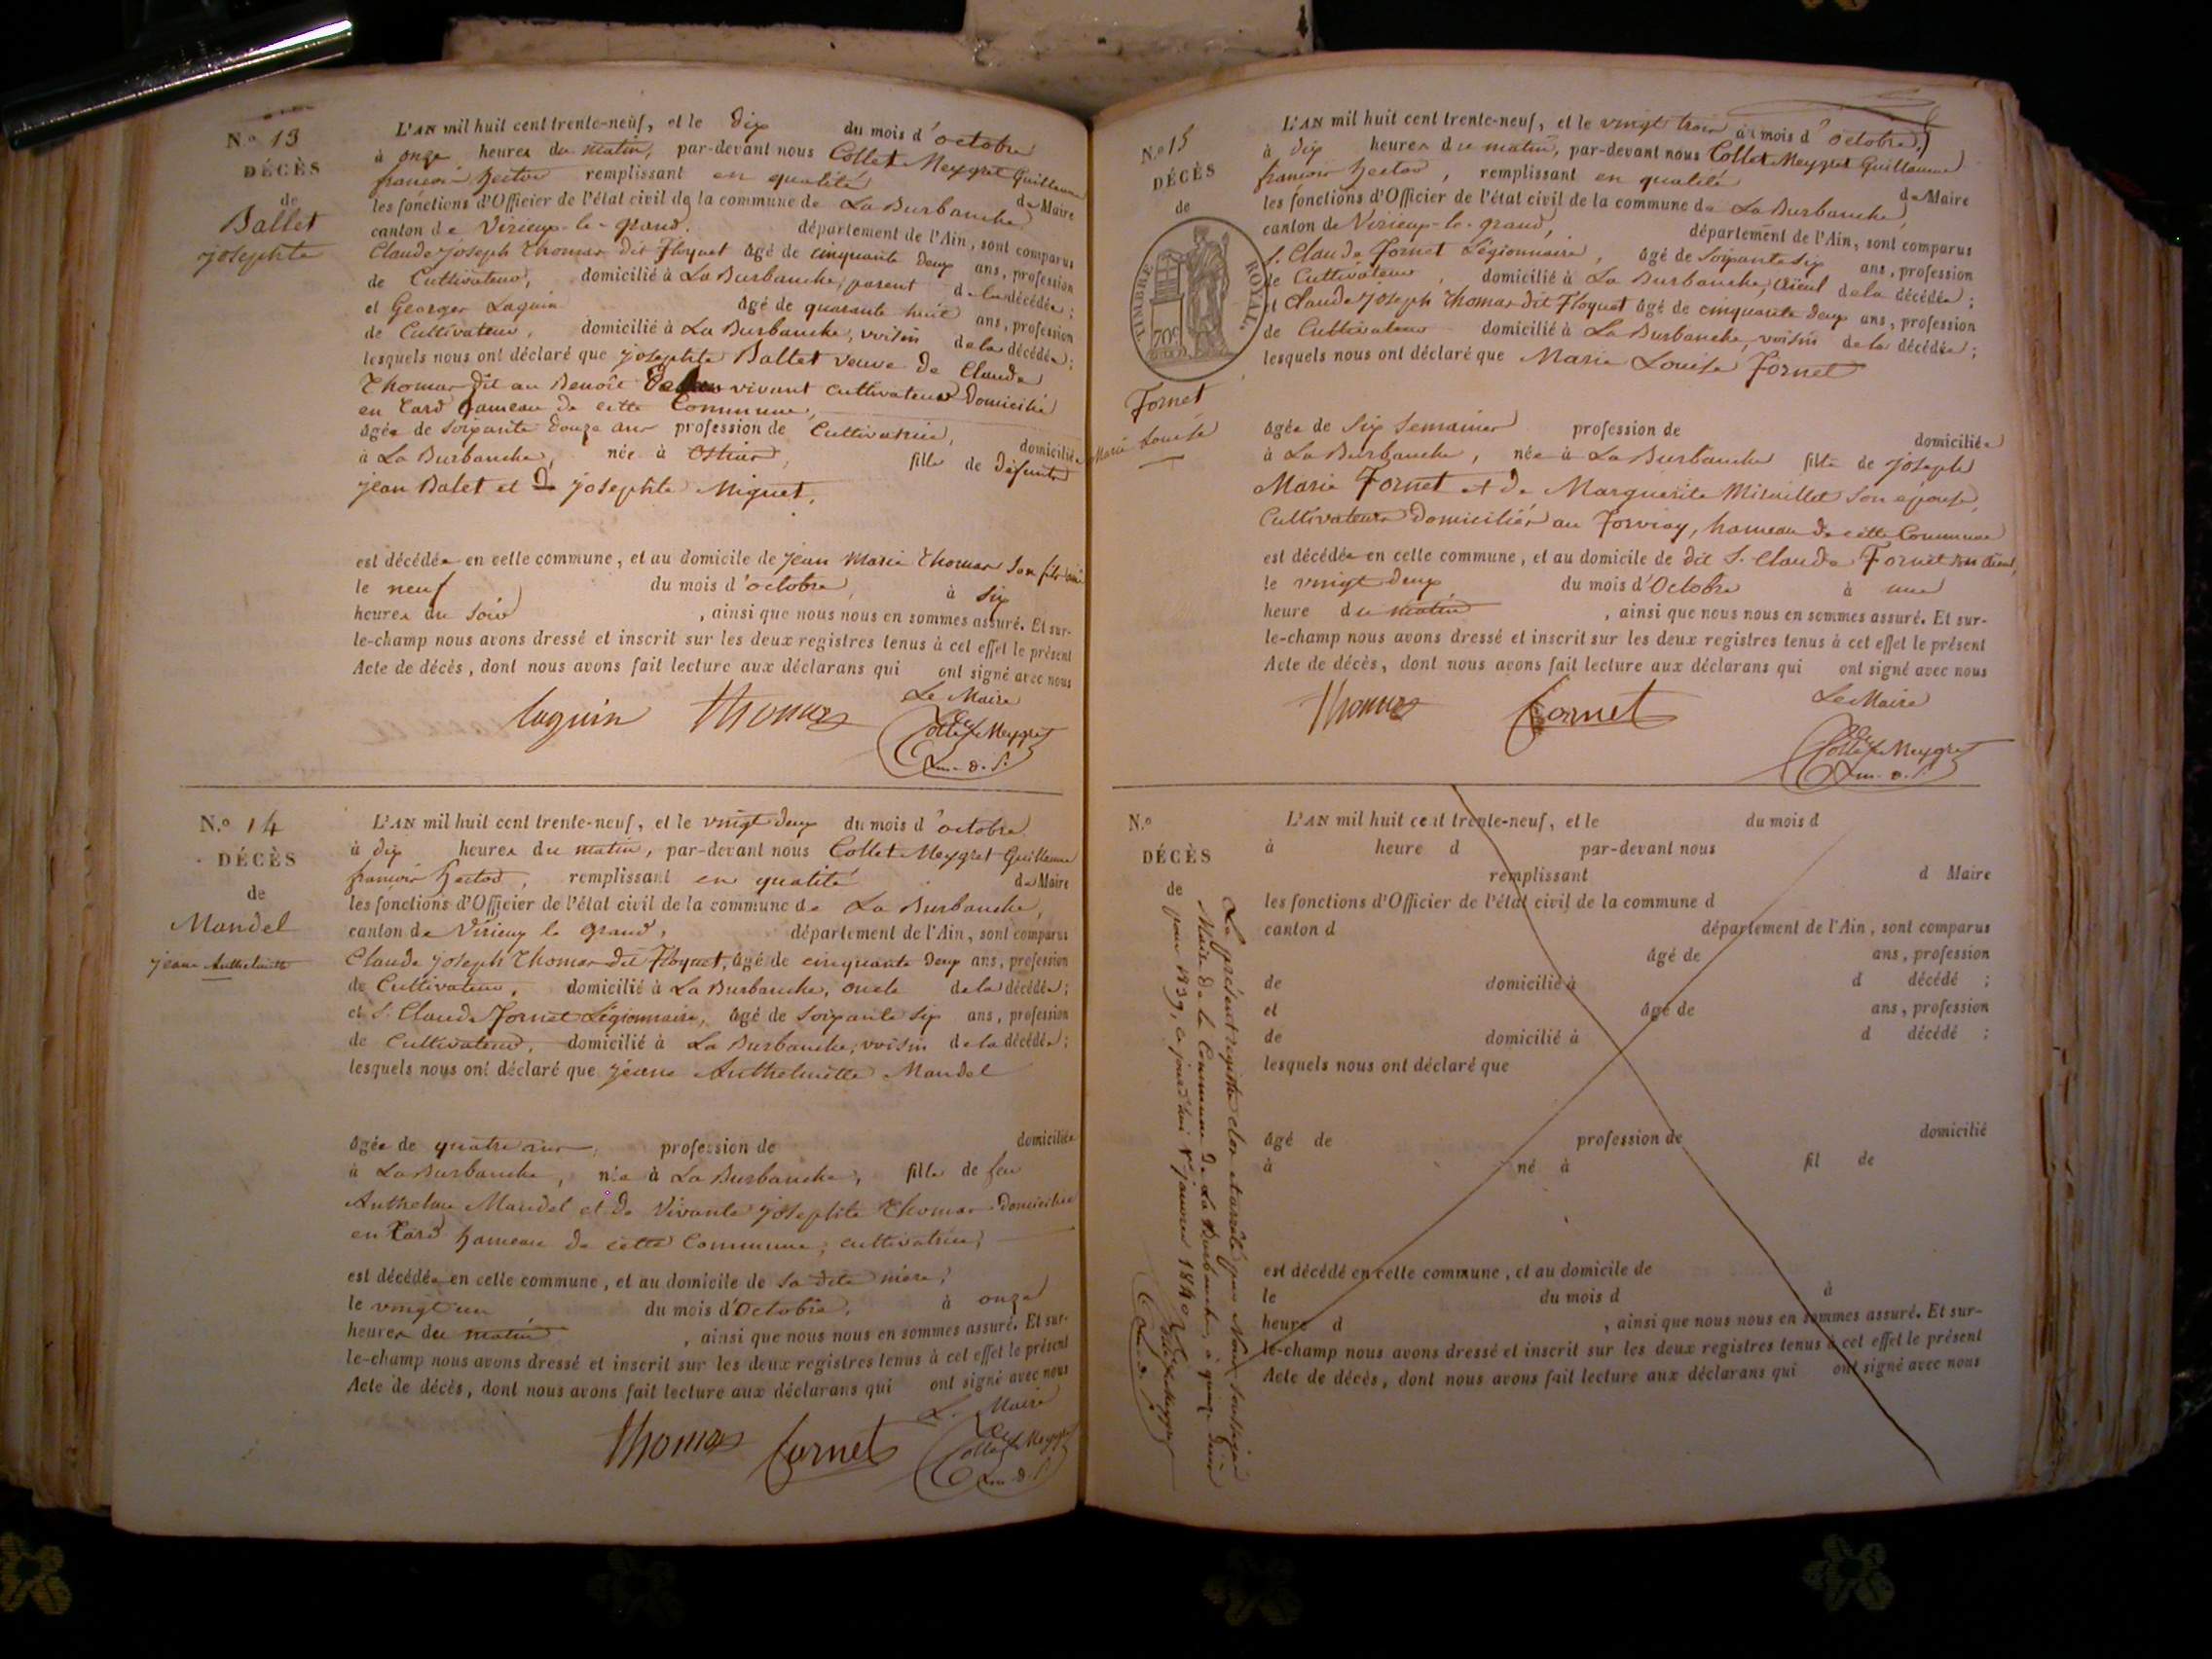 N.º 13
DÉCÈS
de
Ballet
josephte
L'AN mil huit cent trente-neuf, et le dix du mois d'octobre
à onze heures du matin, par-devant nous Collet Meygret Guillaume
françois hector remplissant en qualité de Maire
les fonctions d'Officier de l'état civil de la commune de La Burbanche
canton de Virieux-le-grand. département de l'Ain, sont comparus
Claude joseph Thomas dit floquet âgé de cinquante deux ans, profession
de Cultivateur, domicilié à La Burbanche, parent de la décédée;
et Georges Laguin âgé de quarante huit ans, profession
de Cultivateur, domicilié à La Burbanche, voisin de la décédée;
lesquels nous ont déclaré que josephte Ballet veuve de Claude
Thomas dit au Benoît vivant cultivateur Domicilié
en Tard hameau de cette Commune,
âgée de soixante douze ans profession de Cultivatrice, domiciliée
à La Burbanche, née à fille de défunts
jean Balet et josephte Miguet,
est décédée en cette commune, et au domicile de jean Marie Thomas son fils
le neuf du mois d'octobre, à six
heures du soir, ainsi que nous nous en sommes assuré. Et sur-
le-champ nous avons dressé et inscrit sur les deux registres tenus à cet effet le présent
Acte de décès, dont nous avons fait lecture aux déclarans qui ont signé avec nous
Le Maire
laguin Thomas Collet Meygret
N.º 14
DÉCÈS
de
Mandel
jeane Anthelmette
L'AN mil huit cent trente-neuf, et le vingt deux du mois d'octobre
à dix heures du matin, par-devant nous Collet Meygret Guillaume
françois hector, remplissant en qualité de Maire
les fonctions d'Officier de l'état civil de la commune de La Burbanche,
canton de Virieux le grand, département de l'Ain, sont comparus
Claude joseph Thomas dit Floquet, âgé de cinquante deux ans, profession
de Cultivateur, domicilié à La Burbanche, oncle de la décédée;
et S. Claude Fornet Légionnaire, âgé de soixante six ans, profession
de Cultivateur, domicilié à La Burbanche, voisin de la décédée;
lesquels nous ont déclaré que jeane Anthelmette Mandel
âgée de quatre ans, profession de domiciliée
à La Burbanche, née à La Burbanche, fille de feu
Anthelme Mandel et de Vivante josephte Thomas domiciliée
en Tard hameau de cette Commune, cultivatrice;
est décédée en cette commune, et au domicile de sa dite mère,
le vingt un du mois d'Octobre, à onze
heures du matin, ainsi que nous nous en sommes assuré. Et sur-
le-champ nous avons dressé et inscrit sur les deux registres tenus à cet effet le présent
Acte de décès, dont nous avons fait lecture aux déclarans qui ont signé avec nous
Le Maire
Thomas fornet Collet Meygret
N.º 15
DÉCÈS
de
TIMBRE ROYAL.
70c
Fornet
Marie Louise
L'AN mil huit cent trente-neuf, et le vingt trois du mois d'octobre,
à dix heures du matin, par-devant nous Collet Meygret Guillaume
françois hector, remplissant en qualité de Maire
les fonctions d'Officier de l'état civil de la commune de La Burbanche,
canton de Virieux-le-grand, département de l'Ain, sont comparus
S. Claude Fornet Légionnaire, âgé de soixante six ans, profession
de Cultivateur, domicilié à La Burbanche, aïeul de la décédée;
et Claude joseph Thomas dit Floquet âgé de cinquante deux ans, profession
de Cultivateur domicilié à La Burbanche, voisin de la décédée;
lesquels nous ont déclaré que Marie Louise Fornet
âgée de six semaines profession de domiciliée
à La Burbanche, née à La Burbanche fille de joseph
Marie Fornet et de Marguerite Miraillet son epouse,
Cultivateurs Domiciliés au hameau de cette Commune
est décédée en cette commune, et au domicile de dit S. Claude Fornet son aïeul,
le vingt deux du mois d'Octobre à une
heure du matin, ainsi que nous nous en sommes assuré. Et sur-
le-champ nous avons dressé et inscrit sur les deux registres tenus à cet effet le présent
Acte de décès, dont nous avons fait lecture aux déclarans qui ont signé avec nous
Le Maire
Thomas fornet Collet Meygret
N.º
DÉCÈS
de
L'AN mil huit cent trente-neuf, et le du mois d
à heure d par-devant nous
remplissant d Maire
les fonctions d'Officier de l'état civil de la commune d
canton d département de l'Ain, sont comparus
âgé de ans, profession
de domicilié à d décédé ;
et âgé de ans, profession
de domicilié à d décédé ;
lesquels nous ont déclaré que
âgé de profession de domicilié
à né à fil de
est décédé en cette commune, et au domicile de
le du mois d à
heure d , ainsi que nous nous en sommes assuré. Et sur-
le-champ nous avons dressé et inscrit sur les deux registres tenus à cet effet le présent
Acte de décès, dont nous avons fait lecture aux déclarans qui ont signé avec nous
Le présent registre clos et arrêté par Nous soussigné
Maire de la Commune de La Burbanche, à quinze décès
pour 1839, ce jourd'hui 1er janvier 1840
Collet Meygret